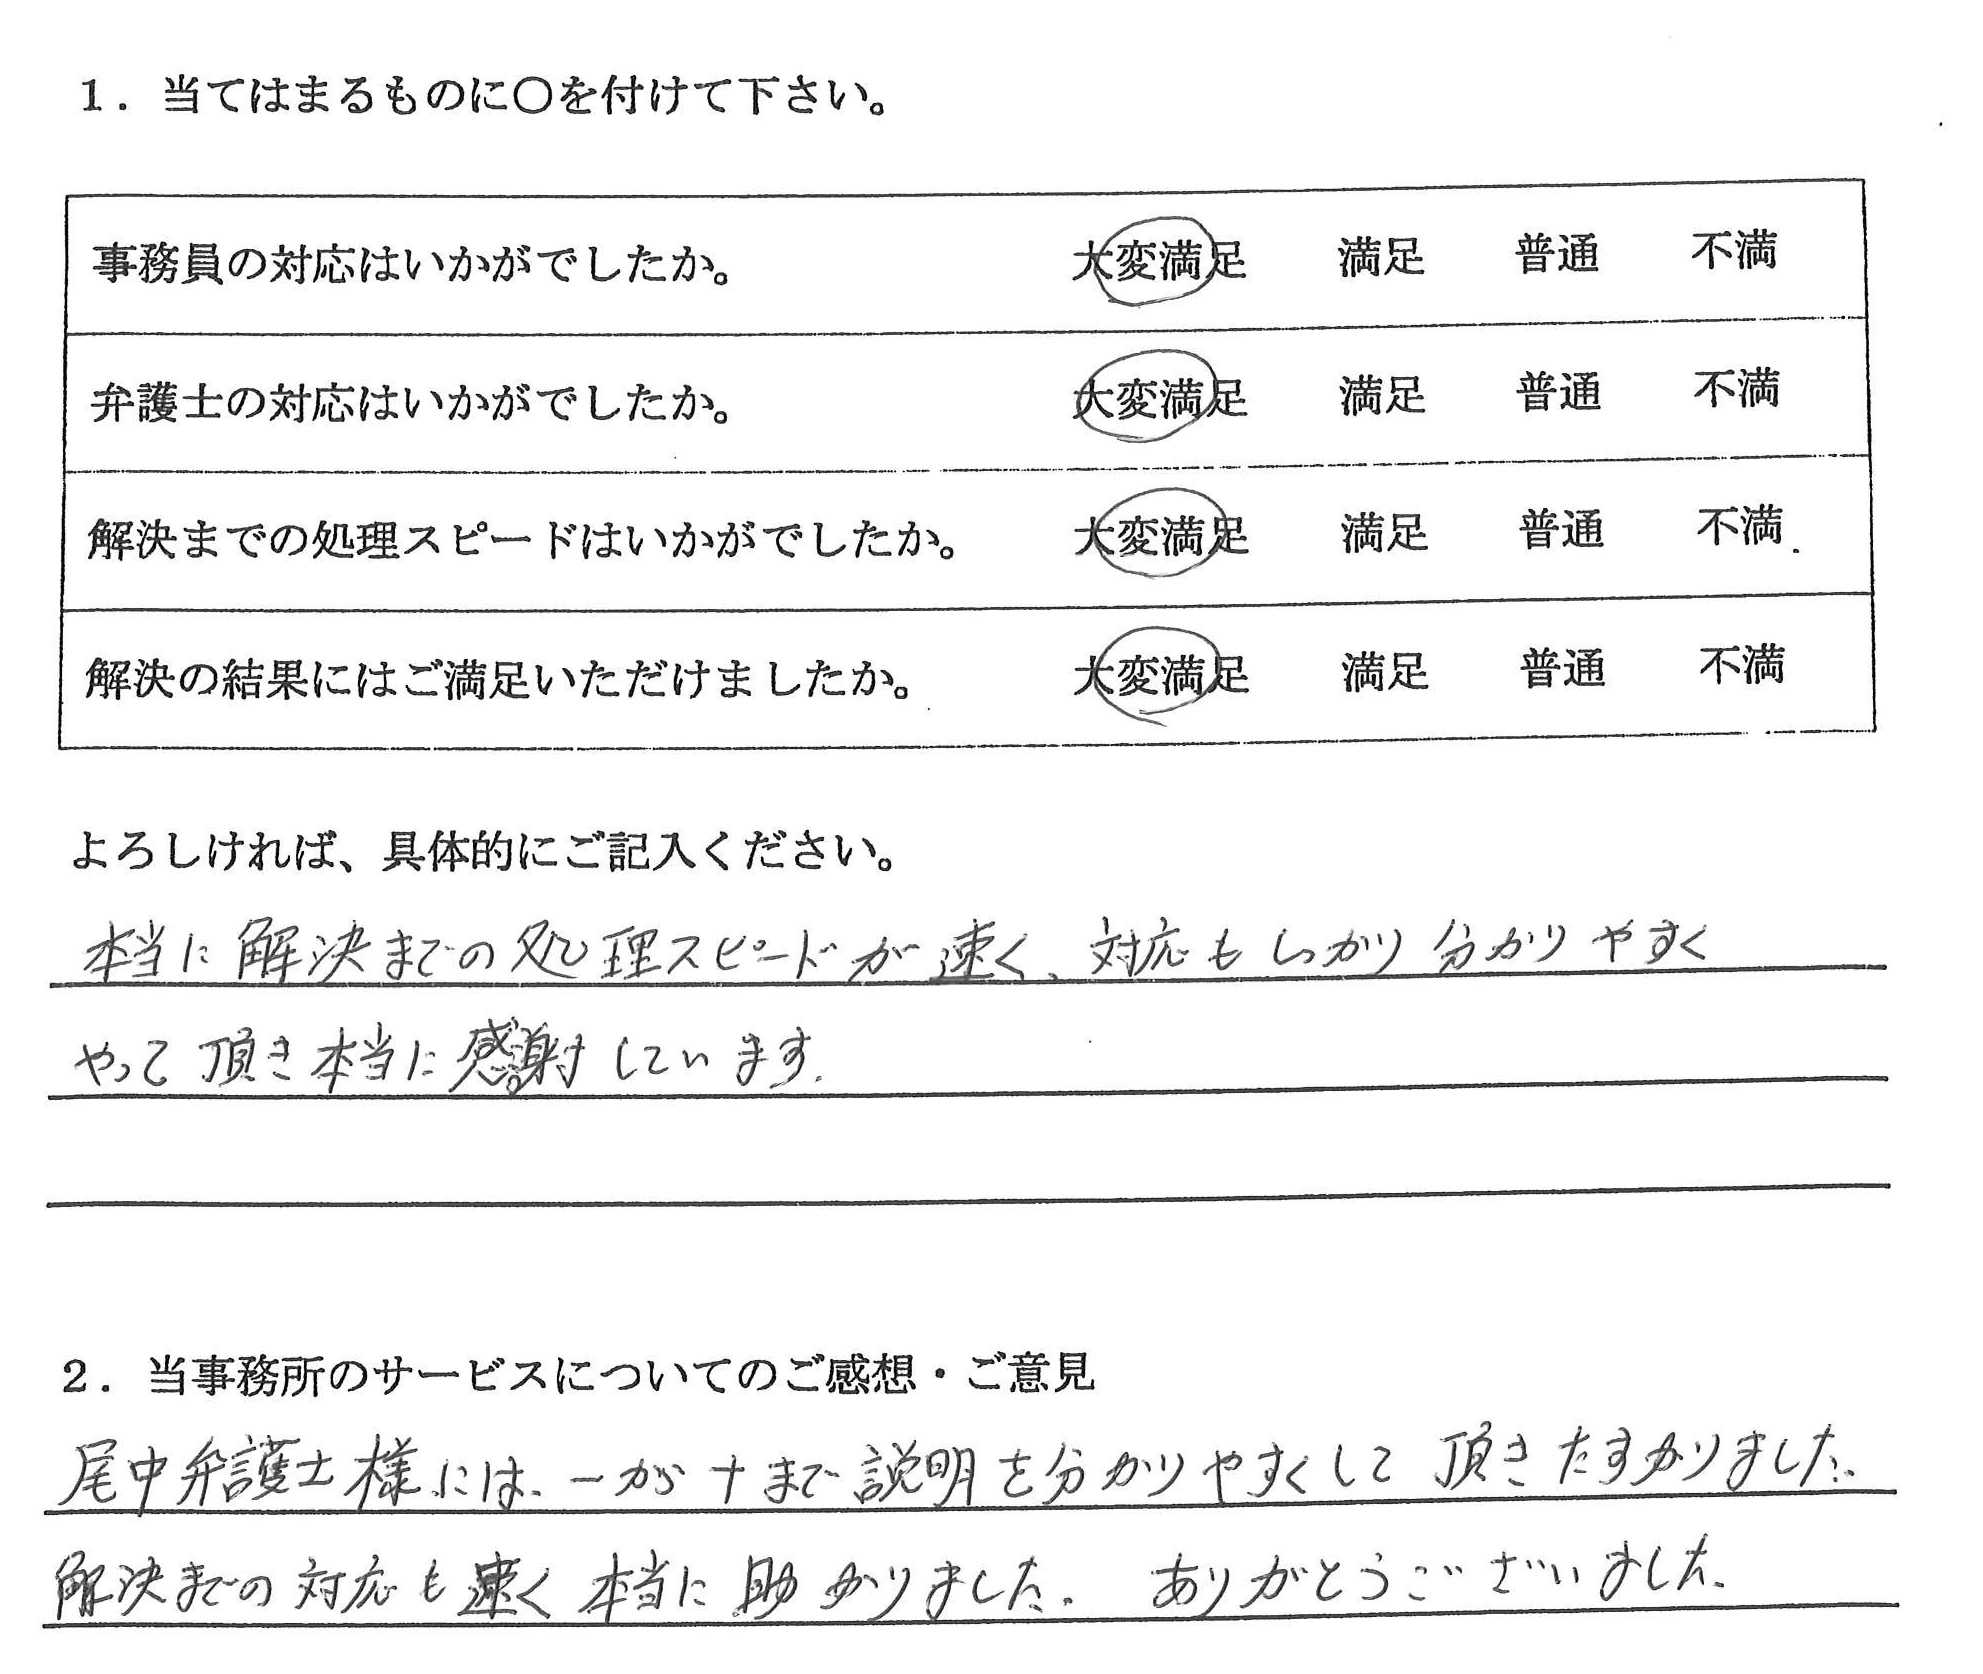 1．当てはまるものに〇を付けて下さい。
事務員の対応はいかがでしたか。　大変満足　満足　普通　不満
弁護士の対応はいかがでしたか。　大変満足　満足　普通　不満
解決までの処理スピードはいかがでしたか。　大変満足　満足　普通　不満
解決の結果にはご満足いただけましたか。　大変満足　満足　普通　不満
よろしければ、具体的にご記入ください。
本当に解決までの処理スピードが速く、対応もしっかり分かりやすく
やって頂き本当に感謝しています。
2．当事務所のサービスについてのご感想・ご意見
尾中弁護士様には、一から十まで説明を分かりやすくして頂きたすかりました。
解決までの対応も速く本当に助かりました。ありがとうございました。